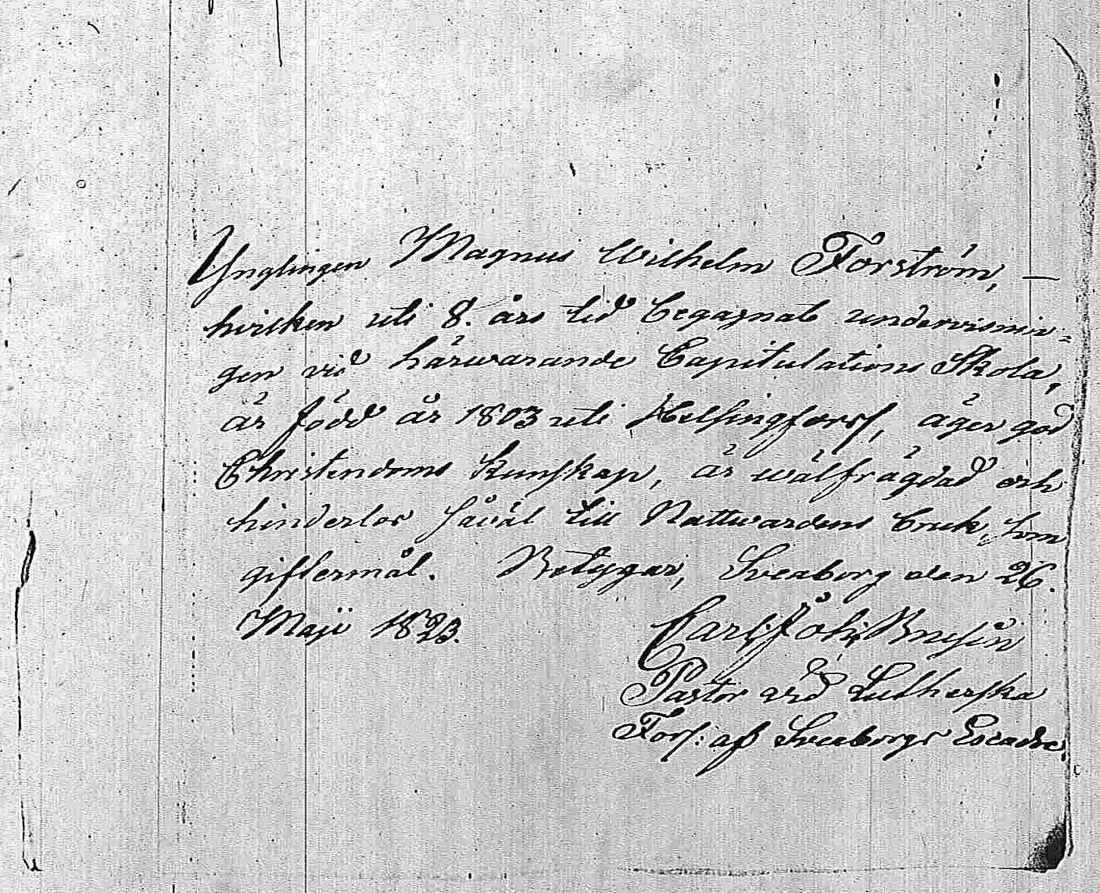 Ynglingen Magnus Wilhelm Forström, —
hvilken uti 8. års tid begagnat undervisnin-
gen vid härwarande Capitulations Skola,
är född år 1803 uti Helsingfors, äger god
Christendoms kunskap, är wälfrägdad och
hinderlös såväl till Nattwardens bruk, som
giftermål. Betygar, Sveaborg den 26.
Maji 1823.
Carl Joh:
Pastor vid Lutherska
Förs: af Sveaborgs Escadre.